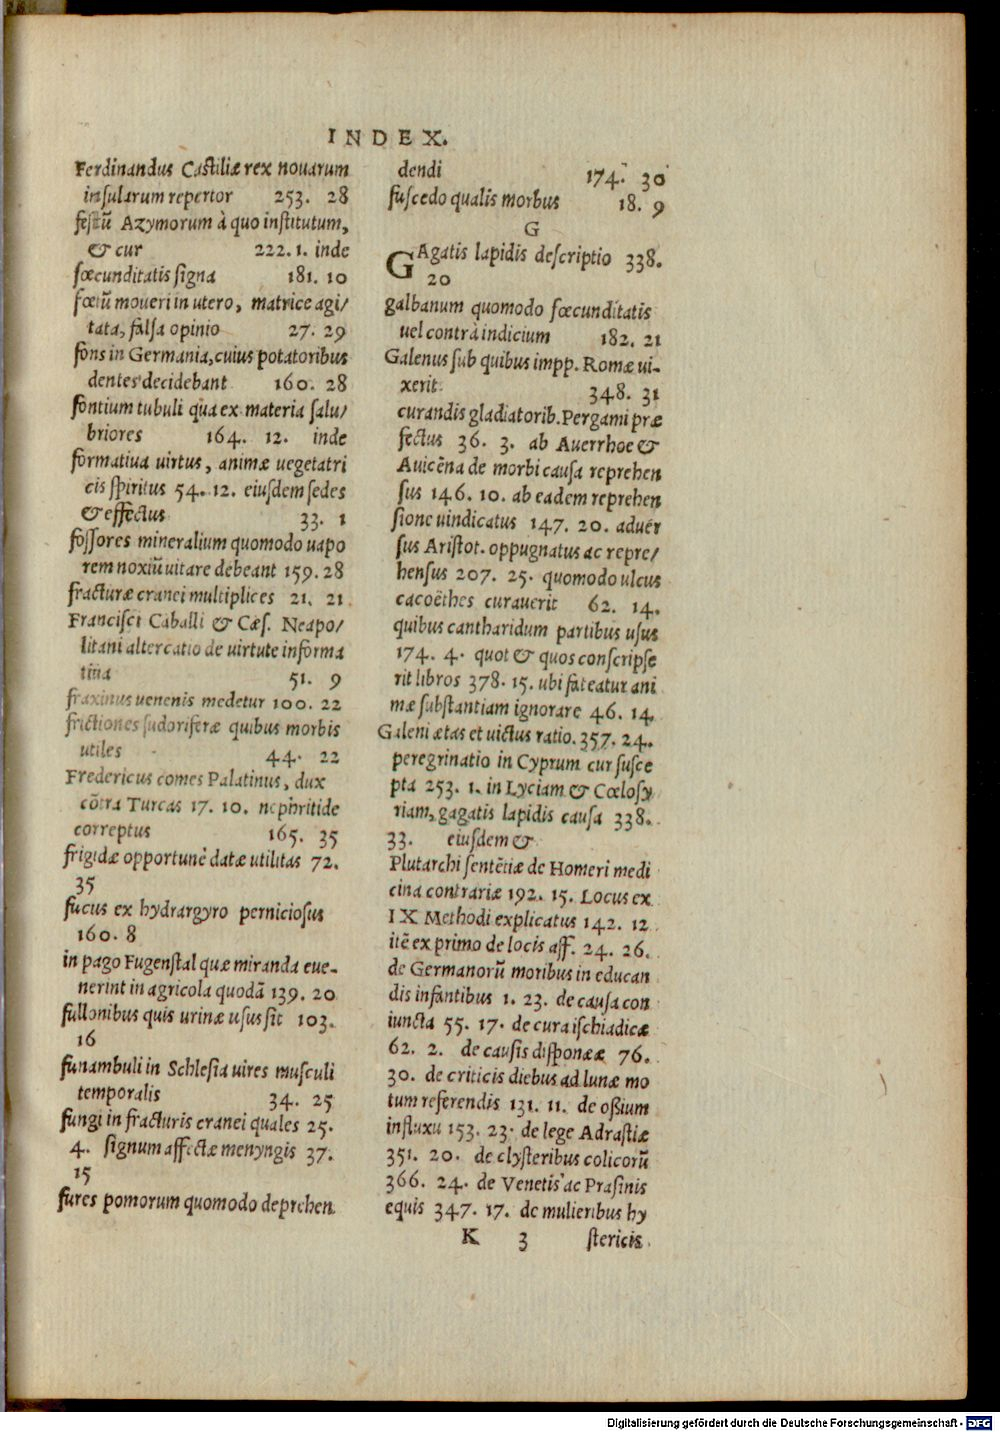 INDEX.
Ferdinandus Castiliæ rex nouarum
insularum repertor 253. 28
festũ Azymorum à quo institutum,
& cur 222. 1. inde
fœcunditatis signa 181. 10
fœtũ moueri in utero, matrice agi/
tata, falsa opinio 27. 29
fons in Germania, cuius potatoribus
dentes decidebant 160. 28
fontium tubuli qua ex materia salu/
briores 164. 12. inde
formatiua virtus, animæ uegetatri
cis spiritus 54. 12. eiusdem sedes
& effectus 33. 1
fossores mineralium quomodo uapo
rem noxiũ uitare debeant 159. 28
fracturæ cranei multiplices 21. 21
Francisci Caballi & Cæs. Neapo/
litani altercatio de virtute informa
tiua 51. 9
fraxinus uenenis medetur 100. 22
frictiones sudoriferæ quibus morbis
utiles 44. 22
Fredericus comes Palatinus, dux
cõtra Turcas 17. 10. nephritide
correptus 165. 35
frigidæ opportunè datæ utilitas 72.
35
fucus ex hydrargyro perniciosus
160. 8
in pago Fugenstal quæ miranda eue-
nerint in agricola quodã 139. 20
fullonibus quis urinæ usus sit 103.
16
funambuli in Schlesia uires musculi
temporalis 34. 25
fungi in fracturis cranei quales 25.
4. signum affectæ menyngis 37.
15
fures pomorum quomodo deprehen
dendi 174. 30
fuscedo qualis morbus 18. 9
G
GAgatis lapidis descriptio 338.
20
galbanum quomodo fœcunditatis
uel contrà indicium 182. 21
Galenus sub quibus impp. Romæ ui-
xerit 348. 31
curandis gladiatorib. Pergami præ
fectus 36. 3. ab Auerrhoe &
Auicẽna de morbi causa reprehen
sus 146. 10. ab eadem reprehen
sione uindicatus 147. 20. aduer
sus Aristot. oppugnatus ac repre/
hensus 207. 25. quomodo ulcus
cacoëthes curauerit 62. 14.
quibus cantharidum partibus usus
174. 4. quot & quos conscripse
rit libros 378. 15. ubi fateatur ani
mæ substantiam ignorare 46. 14
Galeni ætas et uictus ratio. 357. 24.
peregrinatio in Cyprum cur susce
pta 253. 1. in Lyciam & Cœlosy
riam, gagatis lapidis causa 338.
33. eiusdem &
Plutarchi sentẽtiæ de Homeri medi
cina contrariæ 192. 15. Locus ex
IX Methodi explicatus 142. 12
itẽ ex primo de locis aff. 24. 26.
de Germanorũ moribus in educan
dis infantibus 1. 23. de causa con
iuncta 55. 17. de cura ischiadicæ
62. 2. de causis disponææ 76.
30. de criticis diebus ad lunæ mo
tum referendis 131. 11. de oßium
influxu 153. 23. de lege Adrastiæ
351. 20. de clysteribus colicorũ
366. 24. de Venetis ac Prasinis
equis 347. 17. de mulieribus hy
K 3 stericis
Digitalisierung gefördert durch die Deutsche Forschungsgemeinschaft - DFG